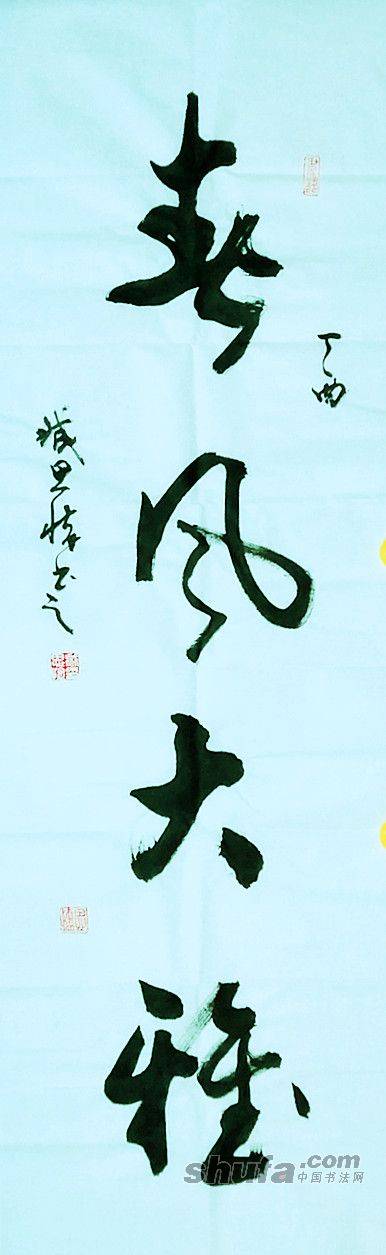 丁酉
春风大雅
思
书之
shufa.com
中国书法网